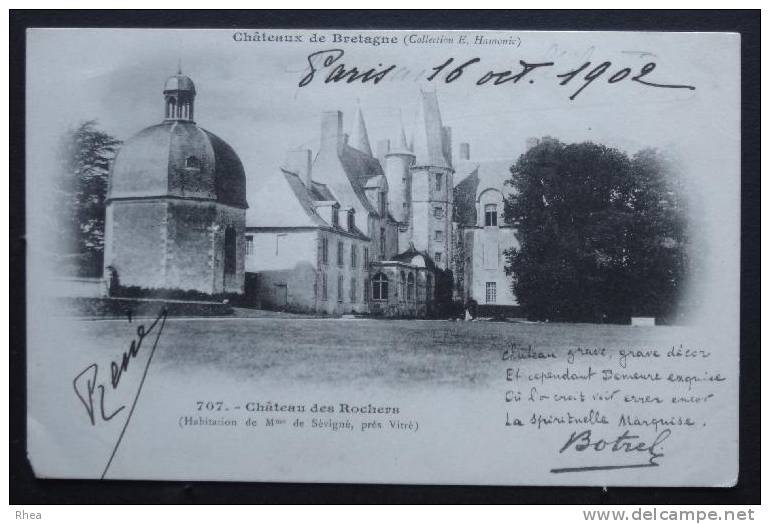 Châteaux de Bretagne (Collection E. Hamonic)
Paris 16 oct. 1902
René
Château grave, grave décor
Et cependant Demeure exquise
Où l'on croit voir errer encor
La Spirituelle Marquise.
Botrel
707. - Château des Rochers
(Habitation de Mme de Sévigné, près Vitré)
Rhea
http://www.delcampe.net